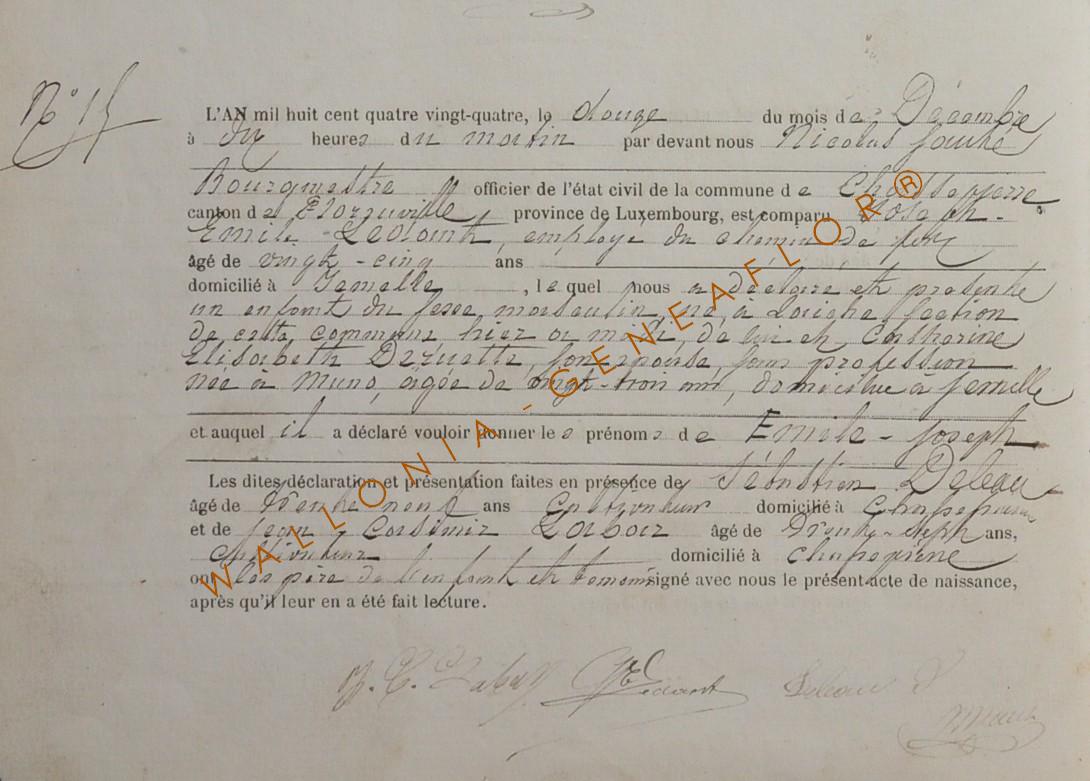 N° 15
L'AN mil huit cent quatre vingt-quatre, le douze du mois de Décembre
à dix heures du matin par devant nous Nicolas
Bourgmestre officier de l'état civil de la commune de Chassepierre
canton de Florenville province de Luxembourg, est comparu Joseph-
Emile Ledoint, employé du chemin de fer
âgé de vingt-cinq ans
domicilié à Jemelle, lequel nous a déclaré et présenté
un enfant du sexe masculin, né, à Laiche section
de cette commune hier à midi, de lui et Catherine
Elisabeth Dezuatte, son épouse, sans profession
née à Muno, âgée de vingt-trois ans, domiciliée à Jemelle
et auquel il a déclaré vouloir donner les prénoms de Emile-Joseph
Les dites déclaration et présentation faites en présence de Sébastien Deleau
âgé de trente neuf ans Cultivateur domicilié à Chassepierre
et de Jean Casimir âgé de trente-sept ans,
cultivateur domicilié à Chassepierre
ont les père de l'enfant et témoins signé avec nous le présent acte de naissance,
après qu'il leur en a été fait lecture.
Deleau S
WALLONIA-GENEAFLOR®